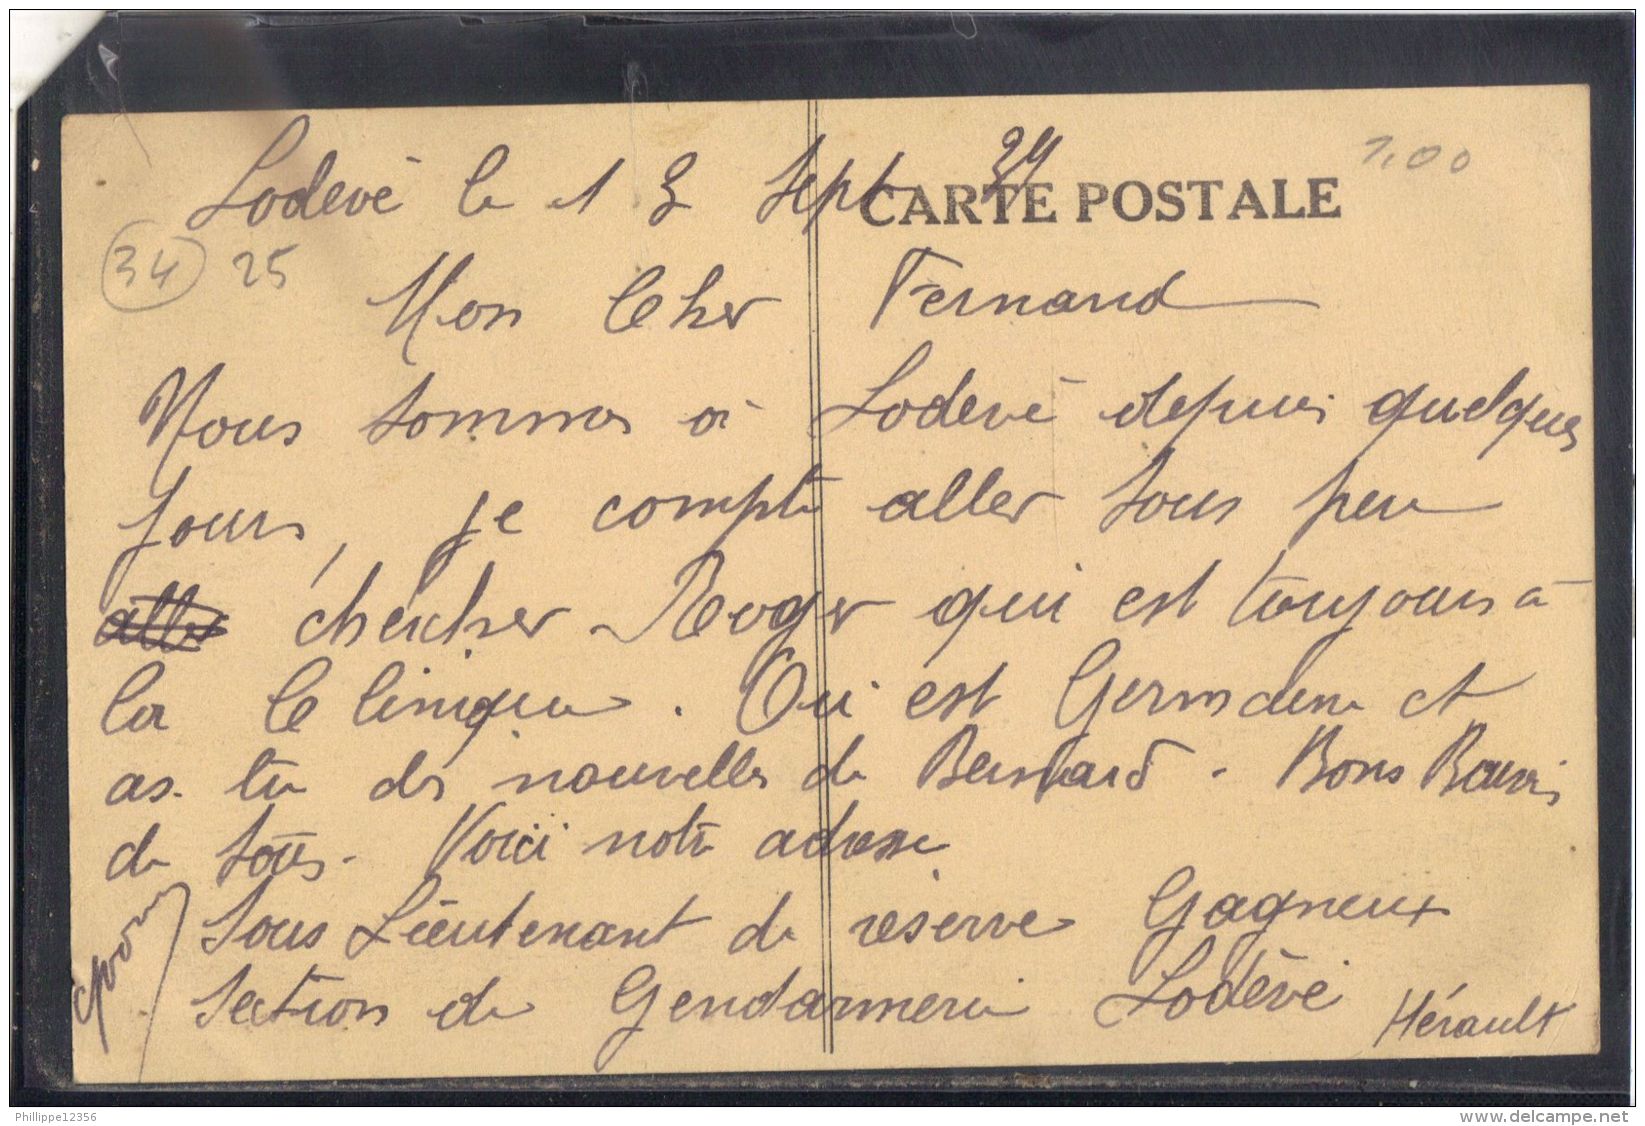 Lodevé le 13 Sept 39
CARTE POSTALE
1,00
34 25
Mon Cher Fernand
Nous sommes à Lodevé depuis quelques
jours, je compte aller sous peu
aller chercher Roger qui est toujours à
la Clinique. Où est Germaine et
as-tu des nouvelles de Bernard. Bons Baisers
de tous. Voici notre adresse
Sous Lieutenant de réserve Gagneux
Section de Gendarmerie Lodévé
Hérault
Philippe12356
www.delcampe.net